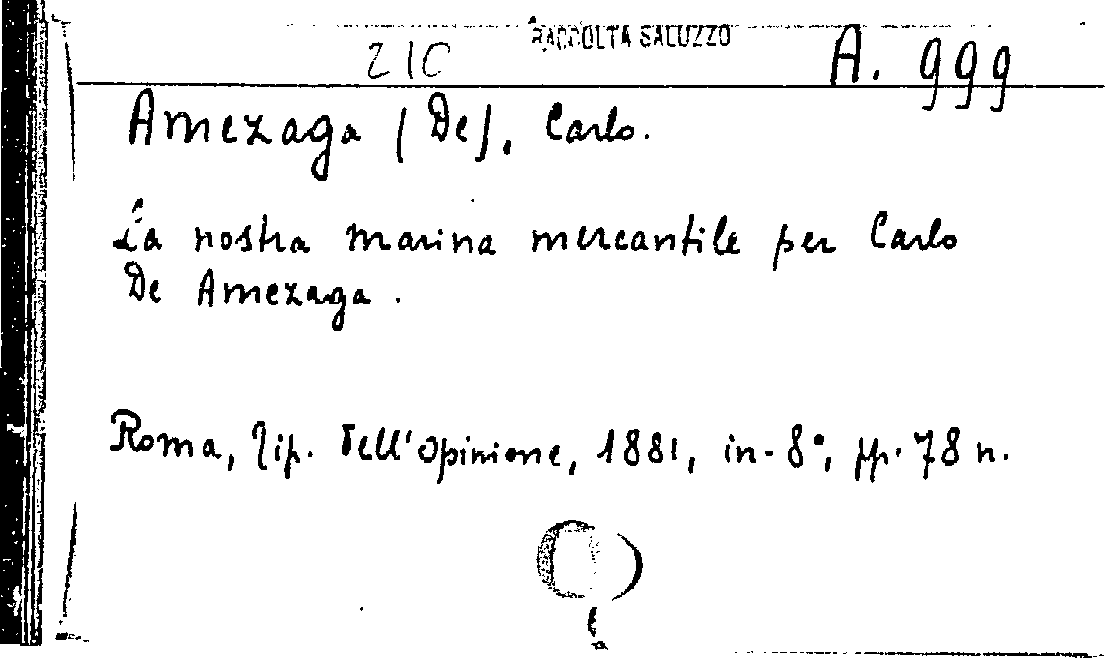 RACCOLTA SALUZZO
21C A. 999
Amezaga (De), Carlo.
La nostra marina mercantile per Carlo
De Amezaga.
Roma, Tip. dell'Opinione, 1881, in-8°, pp. 78 n.